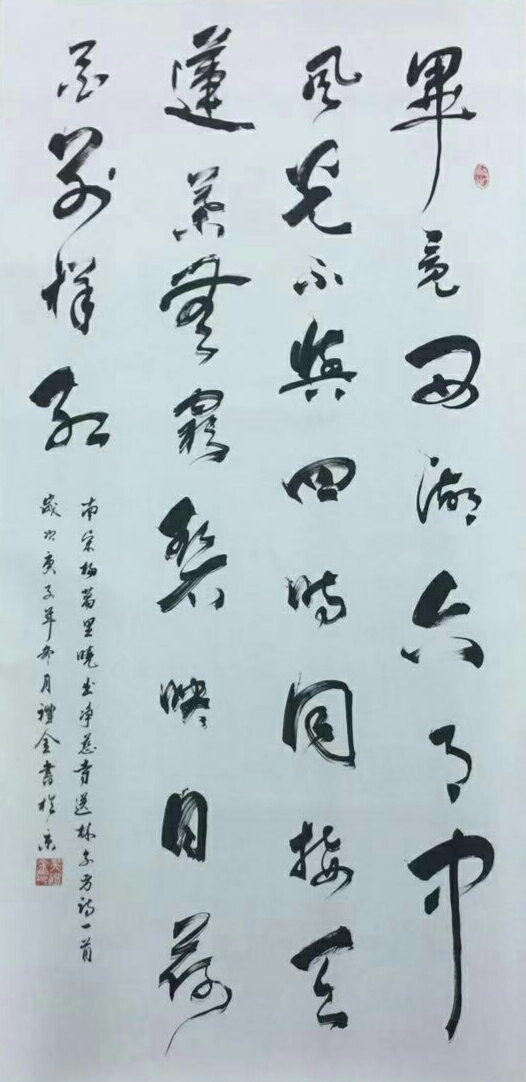 畢竟西湖六月中
風光不與四時同接天
蓮葉無窮碧映日荷
花別樣紅
南宋楊萬里曉出净慈寺送林子方詩一首
歲次庚子年冬月禮金書於京